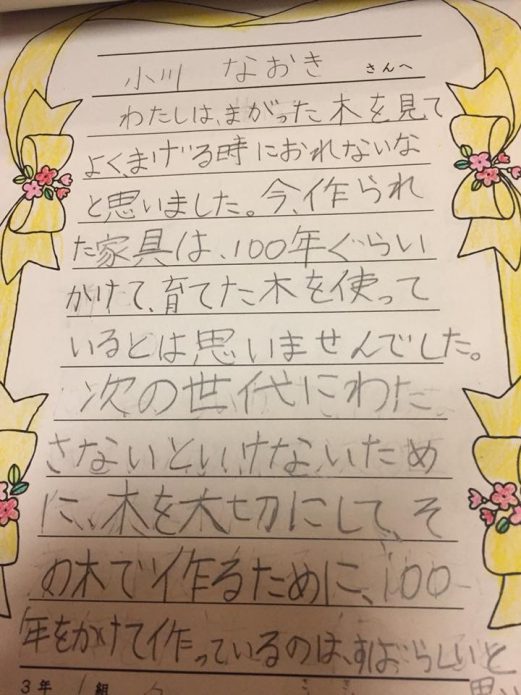 小川 なおき さんへ
わたしは、まがった木を見て
よくまげる時におれないな
と思いました。今、作られ
た家具は、100年ぐらい
かけて、育てた木を使って
いるとは思いませんでした。
次の世代にわた
さないといけないため
に、木を大切にして、そ
の木で作るために、100
年をかけて作っているのは、すばらしいと
3年 1組